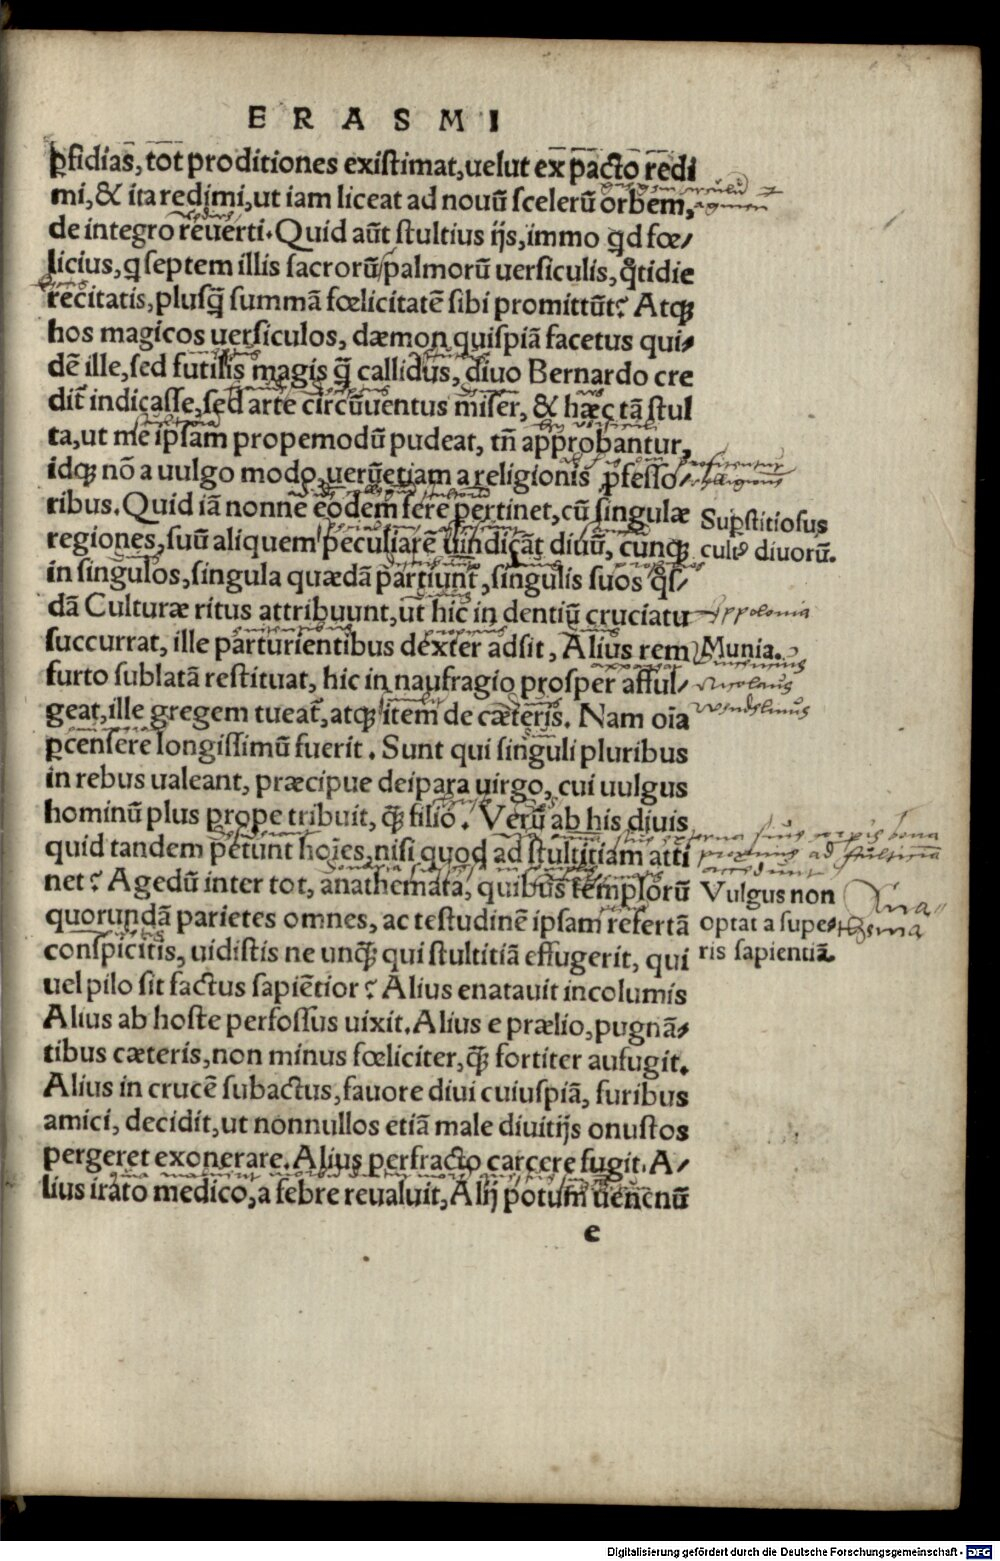 ERASMI
ꝑfidias, tot proditiones existimat, uelut ex pacto redi
mi, & ita redimi, ut iam liceat ad nouū scelerū orbem,
de integro reuerti. Quid aūt stultius ijs, immo qd fœ/
licius, q septem illis sacrorū psalmorū uersiculis, q̄tidie
recitatis, plusq̄ summā fœlicitatē sibi promittūt? Atq;
hos magicos uersiculos, dæmon quispiā facetus qui/
dē ille, sed futilis magis q̄ callidus, diuo Bernardo cre
dit̄ indicasse, sed arte circūuentus miser, & hæc tā stul
ta, ut me ipsam propemodū pudeat, tn̄ approbantur,
idq; nō a uulgo modo, uerūetiam a religionis ꝓfesso/
ribus. Quid iā nonne eodem fere pertinet, cū singulæ
regiones, suū aliquem peculiarē uindicāt diuū, cunq;
in singulos, singula quædā partiunt̄, singulis suos q̄s/
dā Culturæ ritus attribuunt, ut hic in dentiū cruciatu
succurrat, ille parturientibus dexter adsit, Alius rem
furto sublatā restituat, hic in naufragio prosper afful/
geat, ille gregem tueat̄, atq; item de cæteris. Nam oīa
ꝑcensere longissimū fuerit. Sunt qui singuli pluribus
in rebus ualeant, præcipue deipara uirgo, cui uulgus
hominū plus prope tribuit, q̄ filio. Verū ab his diuis
quid tandem petunt hoīes, nisi quod ad stultitiam atti
net? Agedū inter tot, anathemata, quibus templorū
quorundā parietes omnes, ac testudinē ipsam refertā
conspicitis, uidistis ne unq̄ qui stultitiā effugerit, qui
uel pilo sit factus sapiētior? Alius enatauit incolumis
Alius ab hoste perfossus uixit. Alius e prælio, pugnā/
tibus cæteris, non minus fœliciter, q̄ fortiter aufugit.
Alius in crucē subactus, fauore diui cuiuspiā, furibus
amici, decidit, ut nonnullos etiā male diuitijs onustos
pergeret exonerare. Alius perfracto carcere fugit. A/
lius irato medico, a febre reualuit, Alij potum uenenū
e
Supstitiosus
cult⁹ diuorū.
Appolonia
Munia.
Nicolaus
Wendelinus
Vulgus non
optat a supe/
ris sapientiā.
Ana/
thema
Digitalisierung gefördert durch die Deutsche Forschungsgemeinschaft - DFG